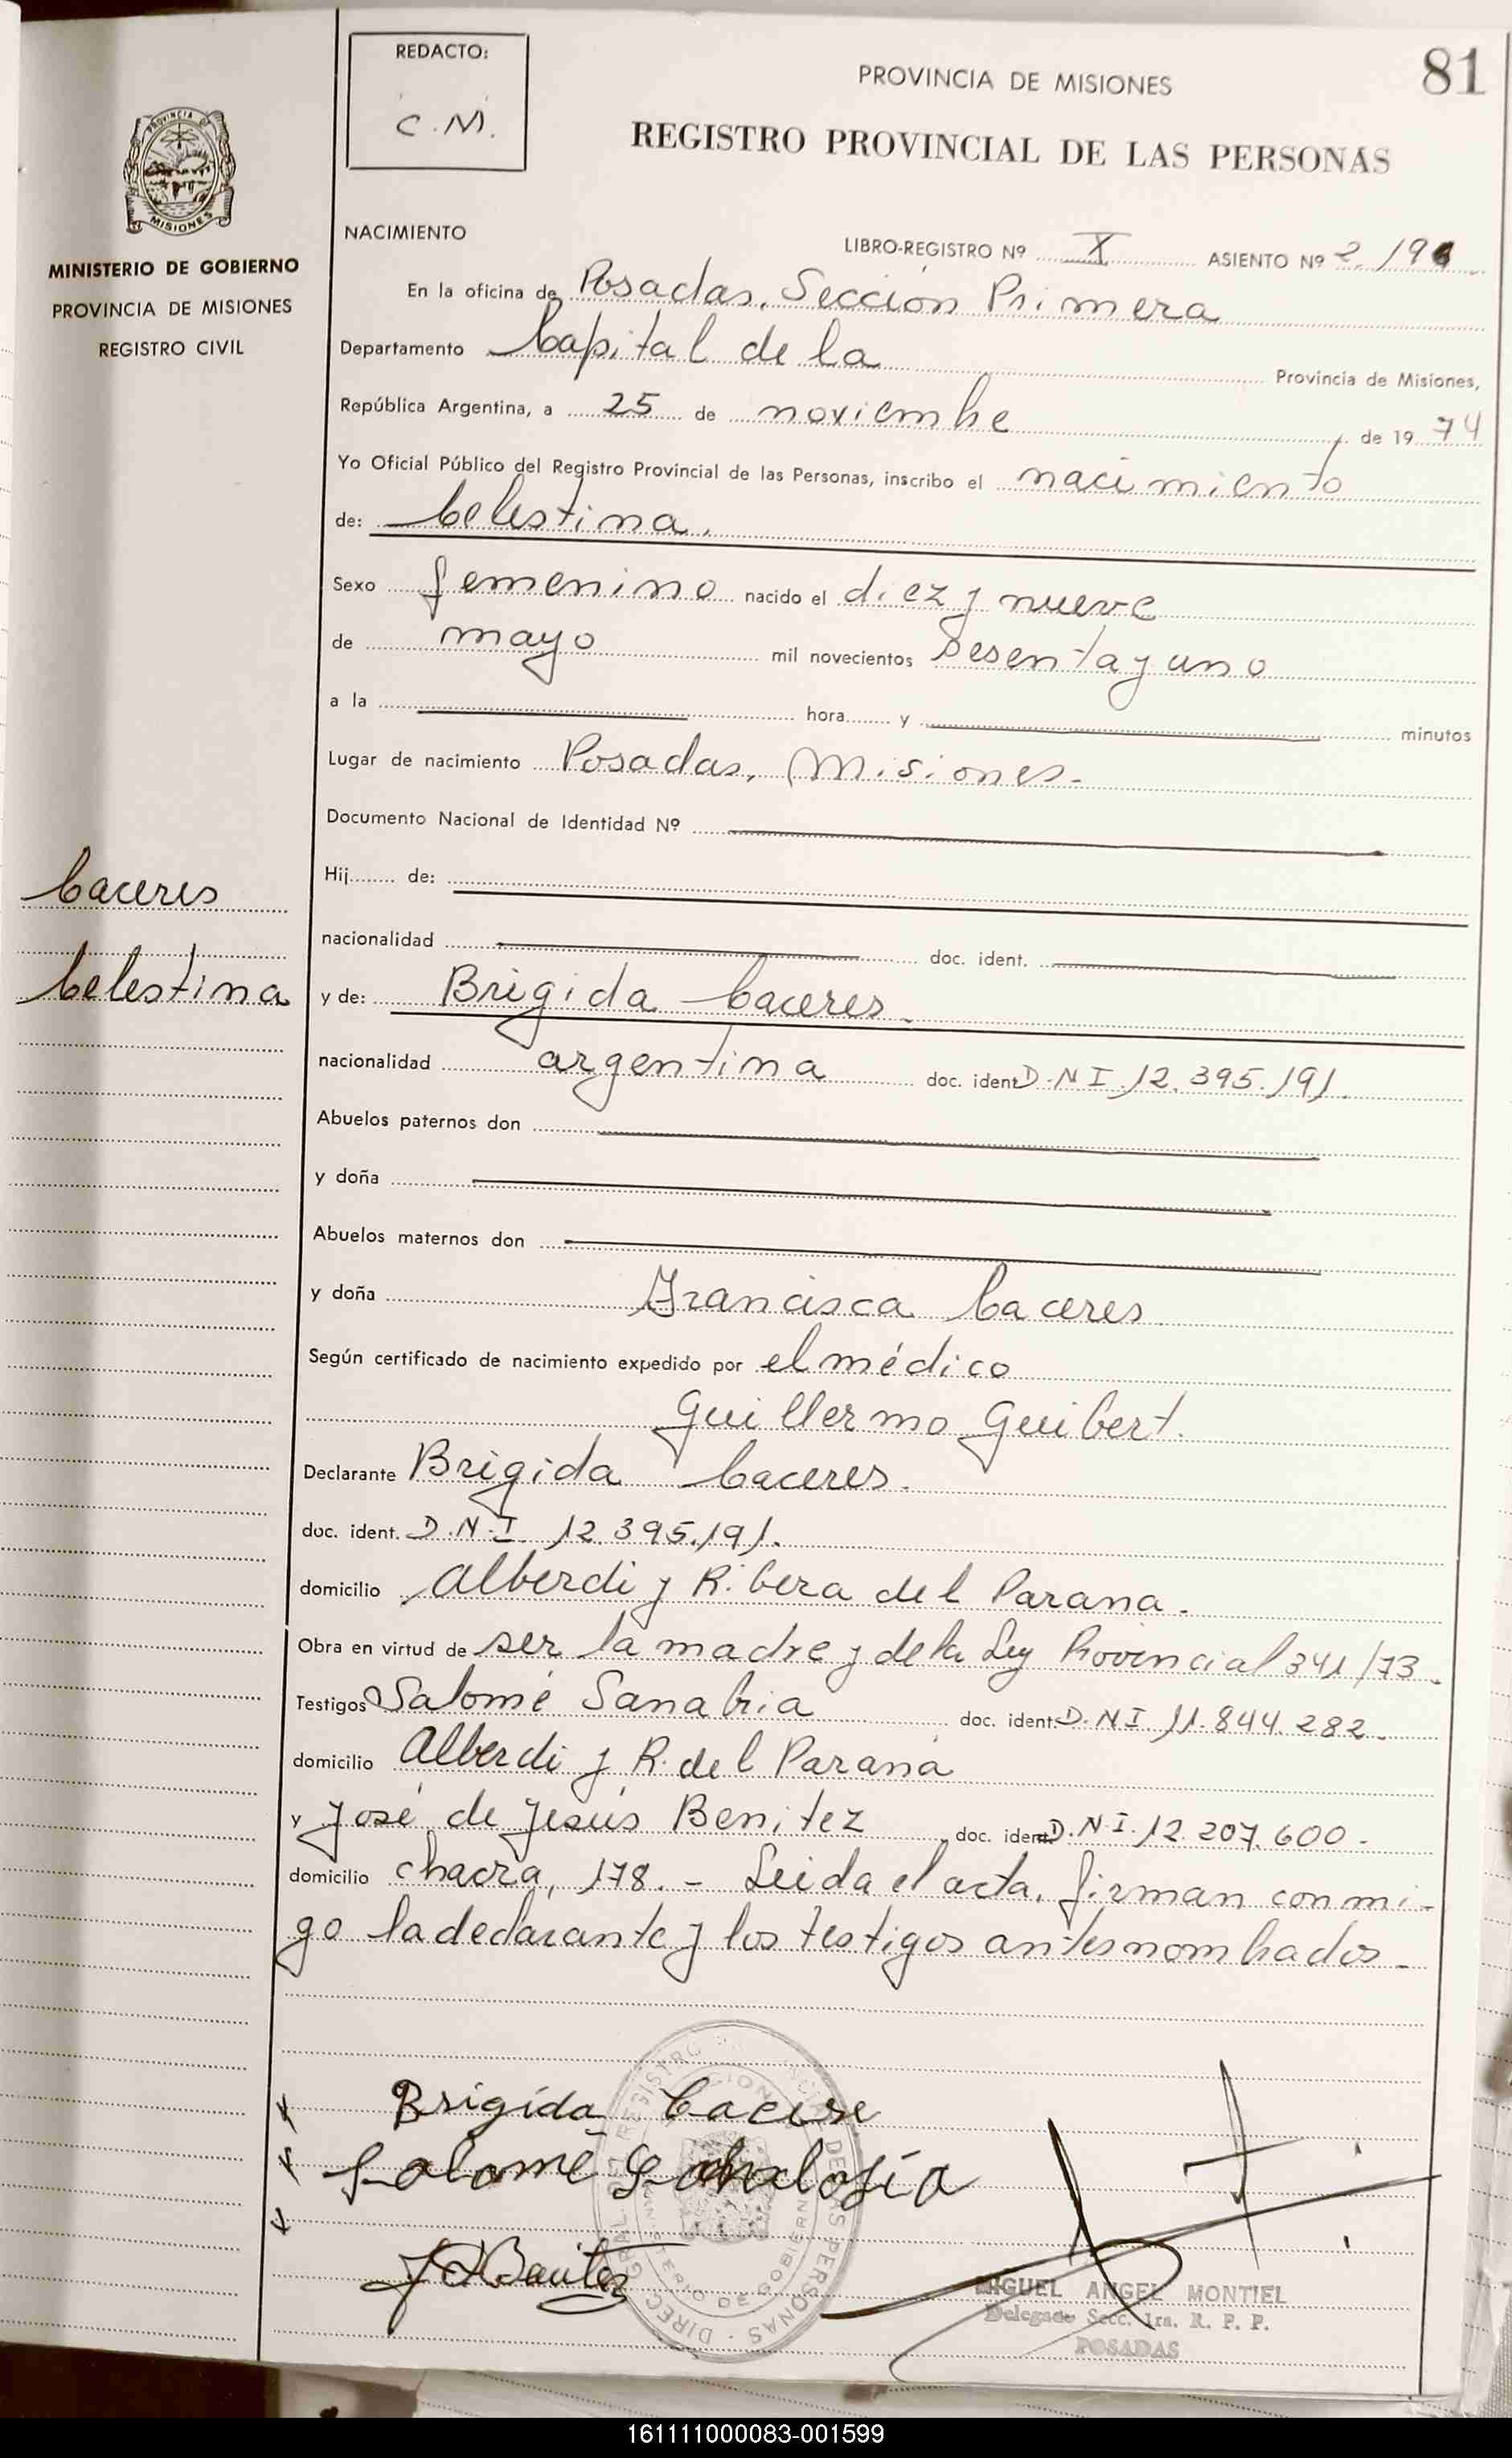 81
REDACTO:
C.M.
PROVINCIA DE MISIONES
REGISTRO PROVINCIAL DE LAS PERSONAS
PROVINCIA DE
MISIONES
MINISTERIO DE GOBIERNO
PROVINCIA DE MISIONES
REGISTRO CIVIL
NACIMIENTO
LIBRO-REGISTRO Nº X ASIENTO Nº
En la oficina de Posadas, Sección Primera
Departamento Capital de la Provincia de Misiones,
República Argentina, a 25 de noviembre de 1974
Yo Oficial Público del Registro Provincial de las Personas, inscribo el nacimiento
de: Celestina.
Sexo femenino nacido el diez y nueve
de mayo mil novecientos sesenta y uno
a la hora y minutos
Lugar de nacimiento Posadas, Misiones.-
Documento Nacional de Identidad Nº
Hij de:
Caceres
nacionalidad doc. ident.
Celestina
y de: Brigida Caceres.
nacionalidad argentina doc. ident D.N.I. 12.395.191.
Abuelos paternos don
y doña
Abuelos maternos don
y doña Francisca Caceres
Según certificado de nacimiento expedido por el médico
Guillermo Guibert.
Declarante Brigida Caceres.
doc. ident. D.N.I. 12.395.191.
domicilio Alberdi y Ribera del Parana.
Obra en virtud de ser la madre y de la Ley Provincial 341/73.
Testigos Salomé Sanabria doc. ident. D.N.I. 11.844.282.
domicilio Alberdi y R. del Paraná
y José de Jesús Benitez doc. ident. D.N.I. 12.207.600.-
domicilio chacra, 178.- Leida el acta, firman conmi-
go la declarante y los testigos antes nombrados.-
Brigida Cacere
Salomé
J Benitez
MIGUEL ANGEL MONTIEL
Delegado Secc. 1ra. R. P. P.
POSADAS
161111000083-001599